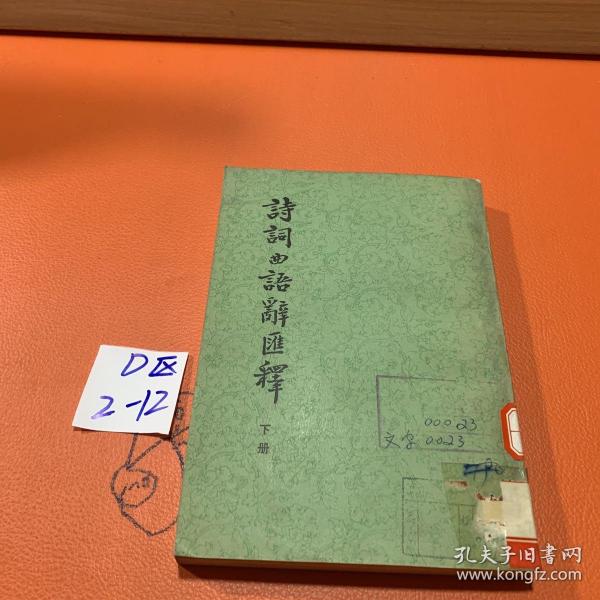 詩詞曲語辭匯釋
下册
D区
2-12
00023
文字 0023
孔夫子旧书网
www.kongfz.com